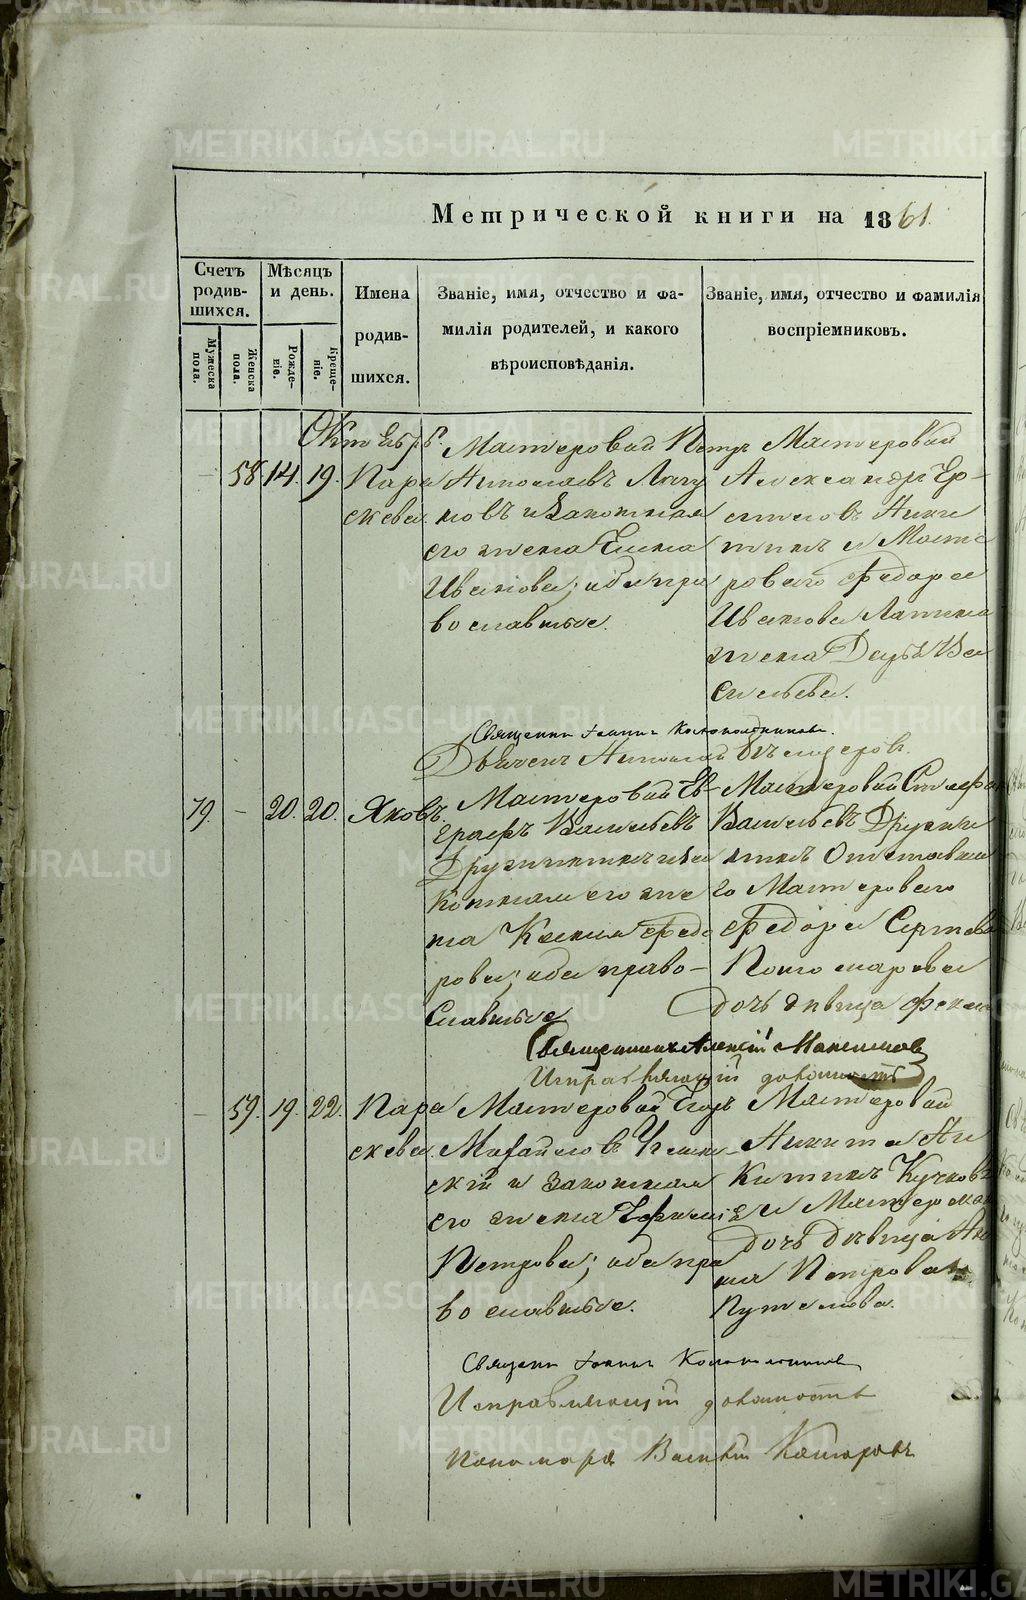 Метрической книги на 1861
Счетъ родив-шихся.
Мѣсяцъ и день.
Имена родив-шихся.
Званіе, имя, отчество и фа-
милія родителей, и какого
вѣроисповѣданія.
Званіе, имя, отчество и фамилія
воспріемниковъ.
Мужеска пола.
Женска пола.
Рожде-ніе.
Креще-ніе.
Октябрь.
58 14. 19. Пара
скева.
Мастеровой Петръ
Николаевъ
и законная
его жена Елена
Иванова; оба пра
вославные.
Мастеровой
Александръ Ер-
Ники
тинъ и Масте
роваго Федора
Иванова Лапина
жена Дарья Ва
сильева.
Священникъ Іоаннъ Колокольниковъ.
Дьячекъ Николай
79. – 20. 20. Яковъ.
Мастеровой Ев-
графъ Васильевъ
Дружининъ и за
конная его же
на Ксенія Федо
рова; оба право-
славные
Мастеровой Стефан
Васильевъ Дружи
нинъ Отставна
го Мастероваго
Федора Сергѣева
Пономарева
дочь дѣвица
Священникъ Алексій Максимовъ
Исправляющій должность
– 59. 19. 22. Пара
скева.
Мастеровой Егоръ
Михайловъ
скій и законная
его жена Ефимія
Петрова; оба пра
вославные.
Мастеровой
Никита Ни
китинъ
и Мастеров
дочь дѣвица Ан
на Петрова
Путилова.
Священникъ Іоаннъ Колокольниковъ
Исправляющій должность
пономаря Василій
METRIKI.GASO-URAL.RU